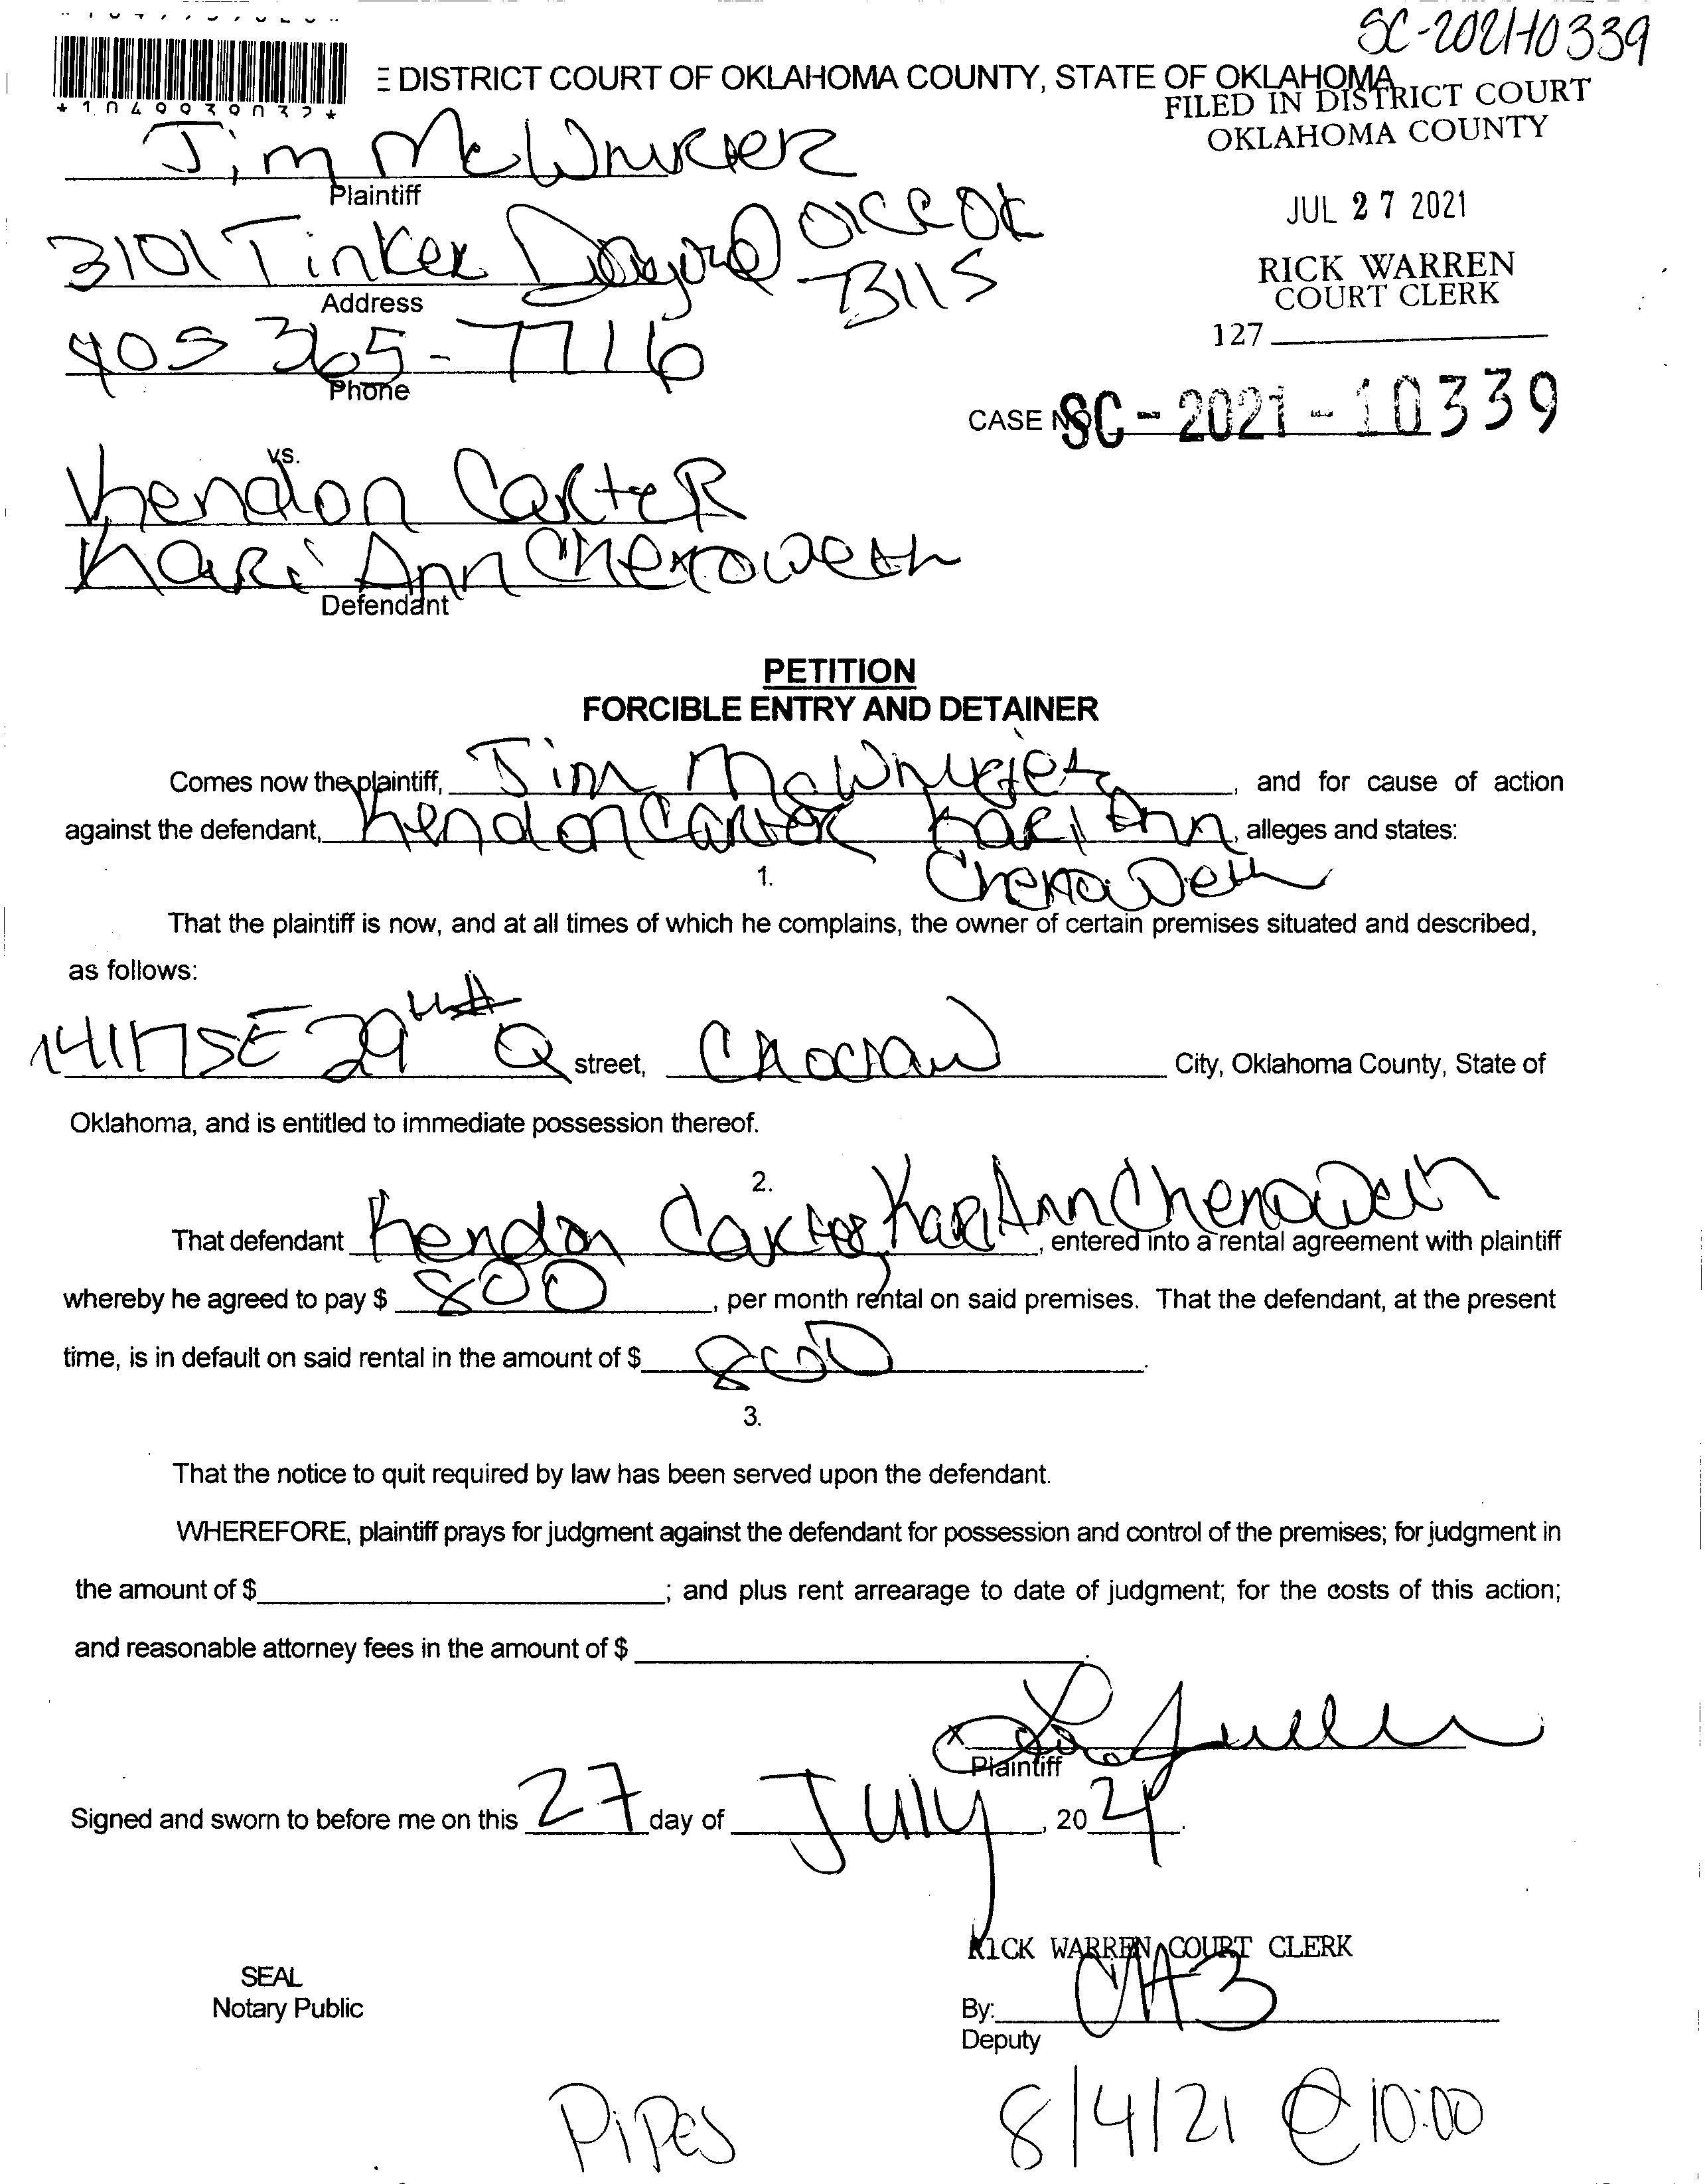 SC-2021-10339
E DISTRICT COURT OF OKLAHOMA COUNTY, STATE OF OKLAHOMA
FILED IN DISTRICT COURT
OKLAHOMA COUNTY
*1049939032*
Jim McWhirter
Plaintiff
JUL 27 2021
3101 Tinker Diagonal OKC OK
73115
Address
RICK WARREN
COURT CLERK
405 365-7716
Phone
127
CASE NO. SC-2021-10339
vs.
Kendon Carter
Kari Ann Chenoweth
Defendant
PETITION
FORCIBLE ENTRY AND DETAINER
Comes now the plaintiff, Jim McWhirter, and for cause of action
against the defendant, Kendon Carter Kari Ann, alleges and states:
Chenoweth
1.
That the plaintiff is now, and at all times of which he complains, the owner of certain premises situated and described,
as follows:
14117 SE 29th # Q street, Choctaw City, Oklahoma County, State of
Oklahoma, and is entitled to immediate possession thereof.
2.
That defendant Kendon Carter, Kari Ann Chenoweth, entered into a rental agreement with plaintiff
whereby he agreed to pay $ 800, per month rental on said premises. That the defendant, at the present
time, is in default on said rental in the amount of $ 800.
3.
That the notice to quit required by law has been served upon the defendant.
WHEREFORE, plaintiff prays for judgment against the defendant for possession and control of the premises; for judgment in
the amount of $ ; and plus rent arrearage to date of judgment; for the costs of this action;
and reasonable attorney fees in the amount of $ .
X
Plaintiff
Signed and sworn to before me on this 27 day of July, 2021.
RICK WARREN COURT CLERK
SEAL
Notary Public
By:
Deputy
Pipes
8/4/21 @ 10:00